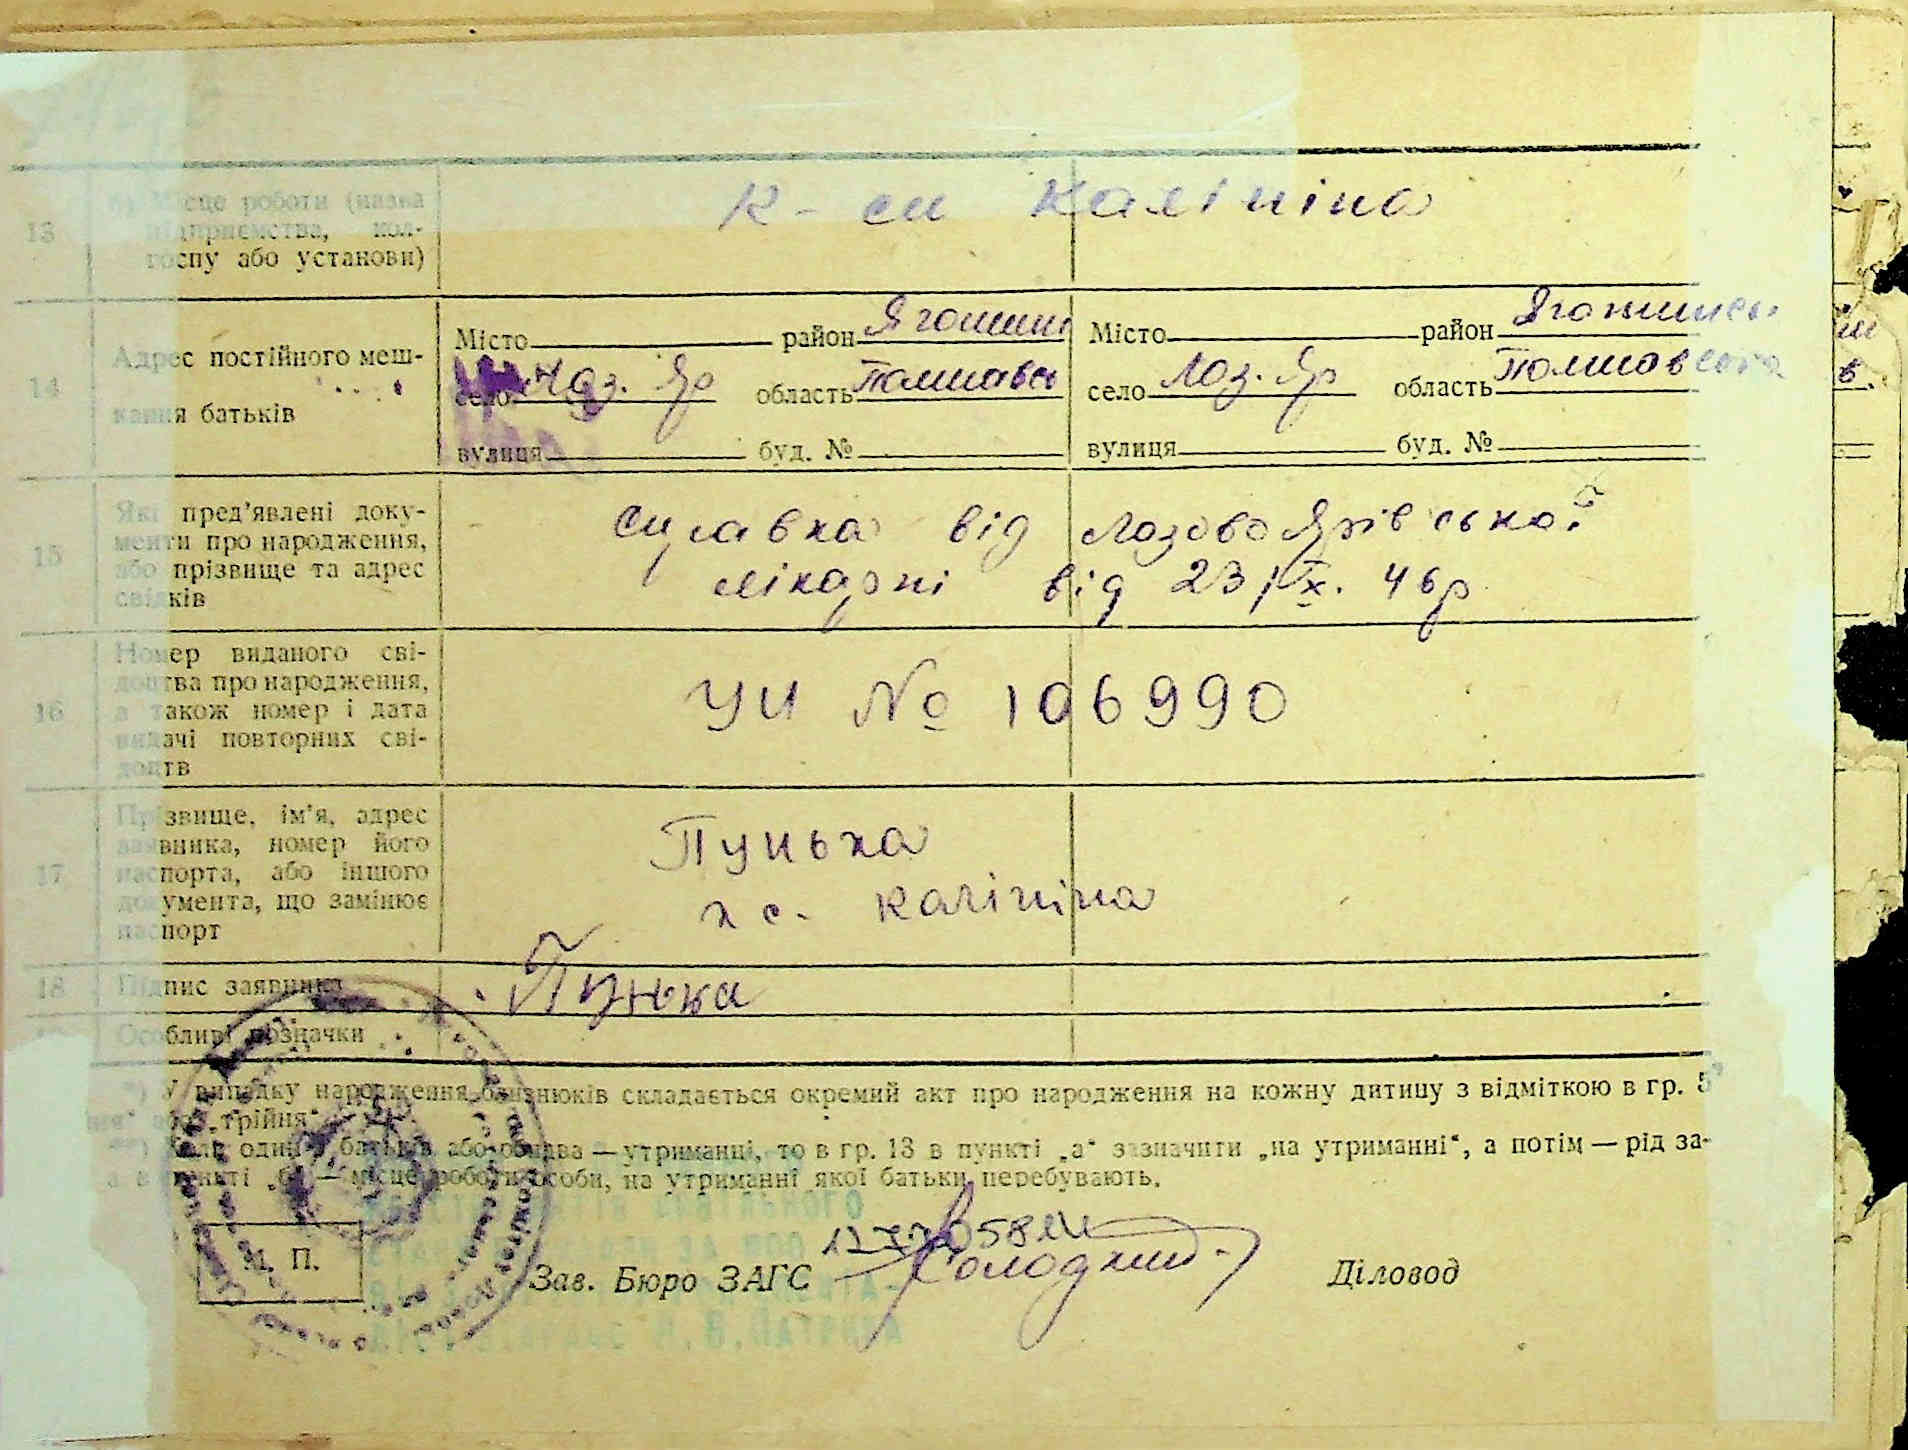 13 б) Місце роботи (назва
підприємства, кол-
госпу або установи)
к-сп Калініна
14 Адрес постійного меш-
кання батьків
Місто район Яготинс
село Лоз. Яр область Полтавсь
вулиця буд. №
Місто район Яготинсь
село Лоз. Яр область Полтавська
вулиця буд. №
15 Які пред'явлені доку-
менти про народження,
або прізвище та адрес
свідків
справка від Лозово Ярівської
лікарні від 23/IX. 46р
16 Номер виданого сві-
доцтва про народження,
а також номер і дата
видачі повторних сві-
доцтв
УИ № 106990
17 Прізвище, ім'я, адрес
заявника, номер його
паспорта, або іншого
документа, що замінює
паспорт
Пунька
кс. Калініна
18 Підпис заявника
Пунька
Особливі позначки
*) У випадку народження близнюків складається окремий акт про народження на кожну дитину з відміткою в гр. 5
"трійня"
**) Коли один з батьків або обидва — утриманці, то в гр. 13 в пункті „а" зазначити „на утриманні", а потім — рід за-
а в пункті „б" — місце роботи особи, на утриманні якої батьки перебувають.
М. П.
Зав. Бюро ЗАГС
Діловод